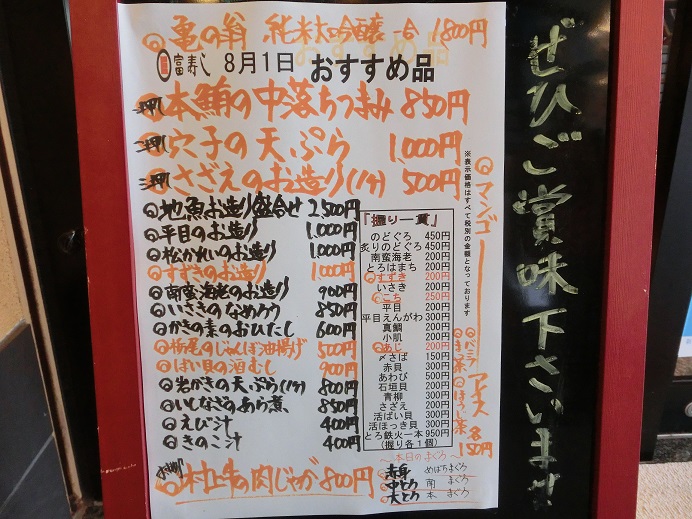 亀の翁 純米大吟醸 一合 1,800円
富寿し 8月1日 おすすめ品
押 本鮪の中落ちつまみ 850円
押 穴子の天ぷら 1,000円
押 さざえのお造り(1ケ) 500円
地魚お造り盛合せ 2,500円
平目のお造り 1,000円
松かれいのお造り 1,000円
すずきのお造り 1,000円
南蛮海老のお造り 900円
いさきのなめろう 850円
かきの素のおひたし 600円
栃尾のじゃんぼ油揚げ 500円
ばい貝の酒むし 900円
岩がきの天ぷら(1ケ) 800円
いしなぎのあら煮 850円
えび汁 400円
きのこ汁 400円
村上牛の肉じゃが 800円
『握り一貫』
のどぐろ 450円
炙りのどぐろ 450円
南蛮海老 200円
とろはまち 200円
すずき 200円
いさき 200円
こち 250円
平目 200円
平目えんがわ 300円
真鯛 200円
小肌 200円
あじ 200円
〆さば 150円
赤貝 300円
あわび 500円
石垣貝 200円
青柳 300円
さざえ 200円
活ばい貝 300円
活ほっき貝 300円
とろ鉄火一本 950円
(握り各1個)
〜本日のまぐろ〜
赤身 めばちまぐろ
中とろ 南まぐろ
大とろ 本まぐろ
※表示価格はすべて税別の金額となっております
マンゴー
バニラ
抹茶
ほうじ茶
アイス
各150円
ぜひご賞味下さいませ